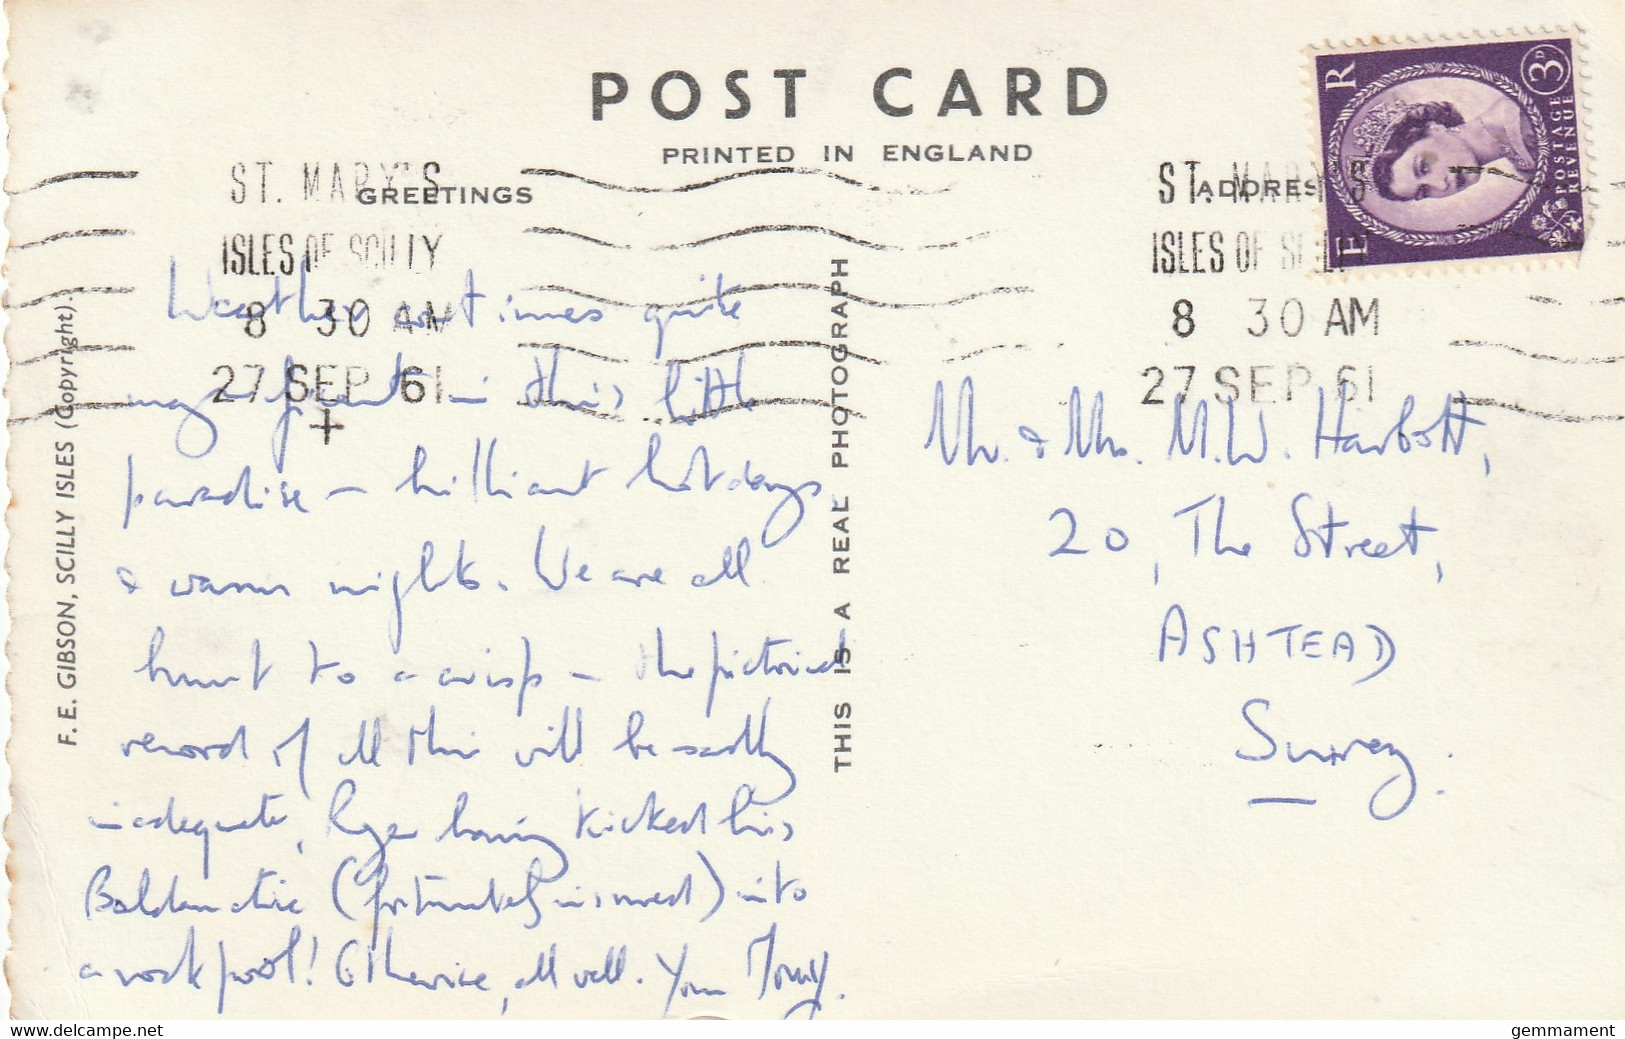 POST CARD
PRINTED IN ENGLAND
GREETINGS
ADDRESS
ST. MARY'S
ISLES OF SCILLY
8 30 AM
27 SEP 61
ST. MARY'S
ISLES OF SCILLY
8 30 AM
27 SEP 61
E R
POSTAGE
REVENUE
3D
Weather at times quite
magnificent in this little
paradise – brilliant hot days
& warm nights. We are all
burnt to a crisp – the pictorial
record of all this will be sadly
inadequate, Roger having kicked his
Baldamatic (fortunately insured) into
a rock pool! Otherwise, all well. Your
Mr. & Mrs. M.W. Harbott,
20, The Street,
ASHTEAD
Surrey.
F. E. GIBSON, SCILLY ISLES (Copyright).
THIS IS A REAL PHOTOGRAPH
www.delcampe.net
gemmament